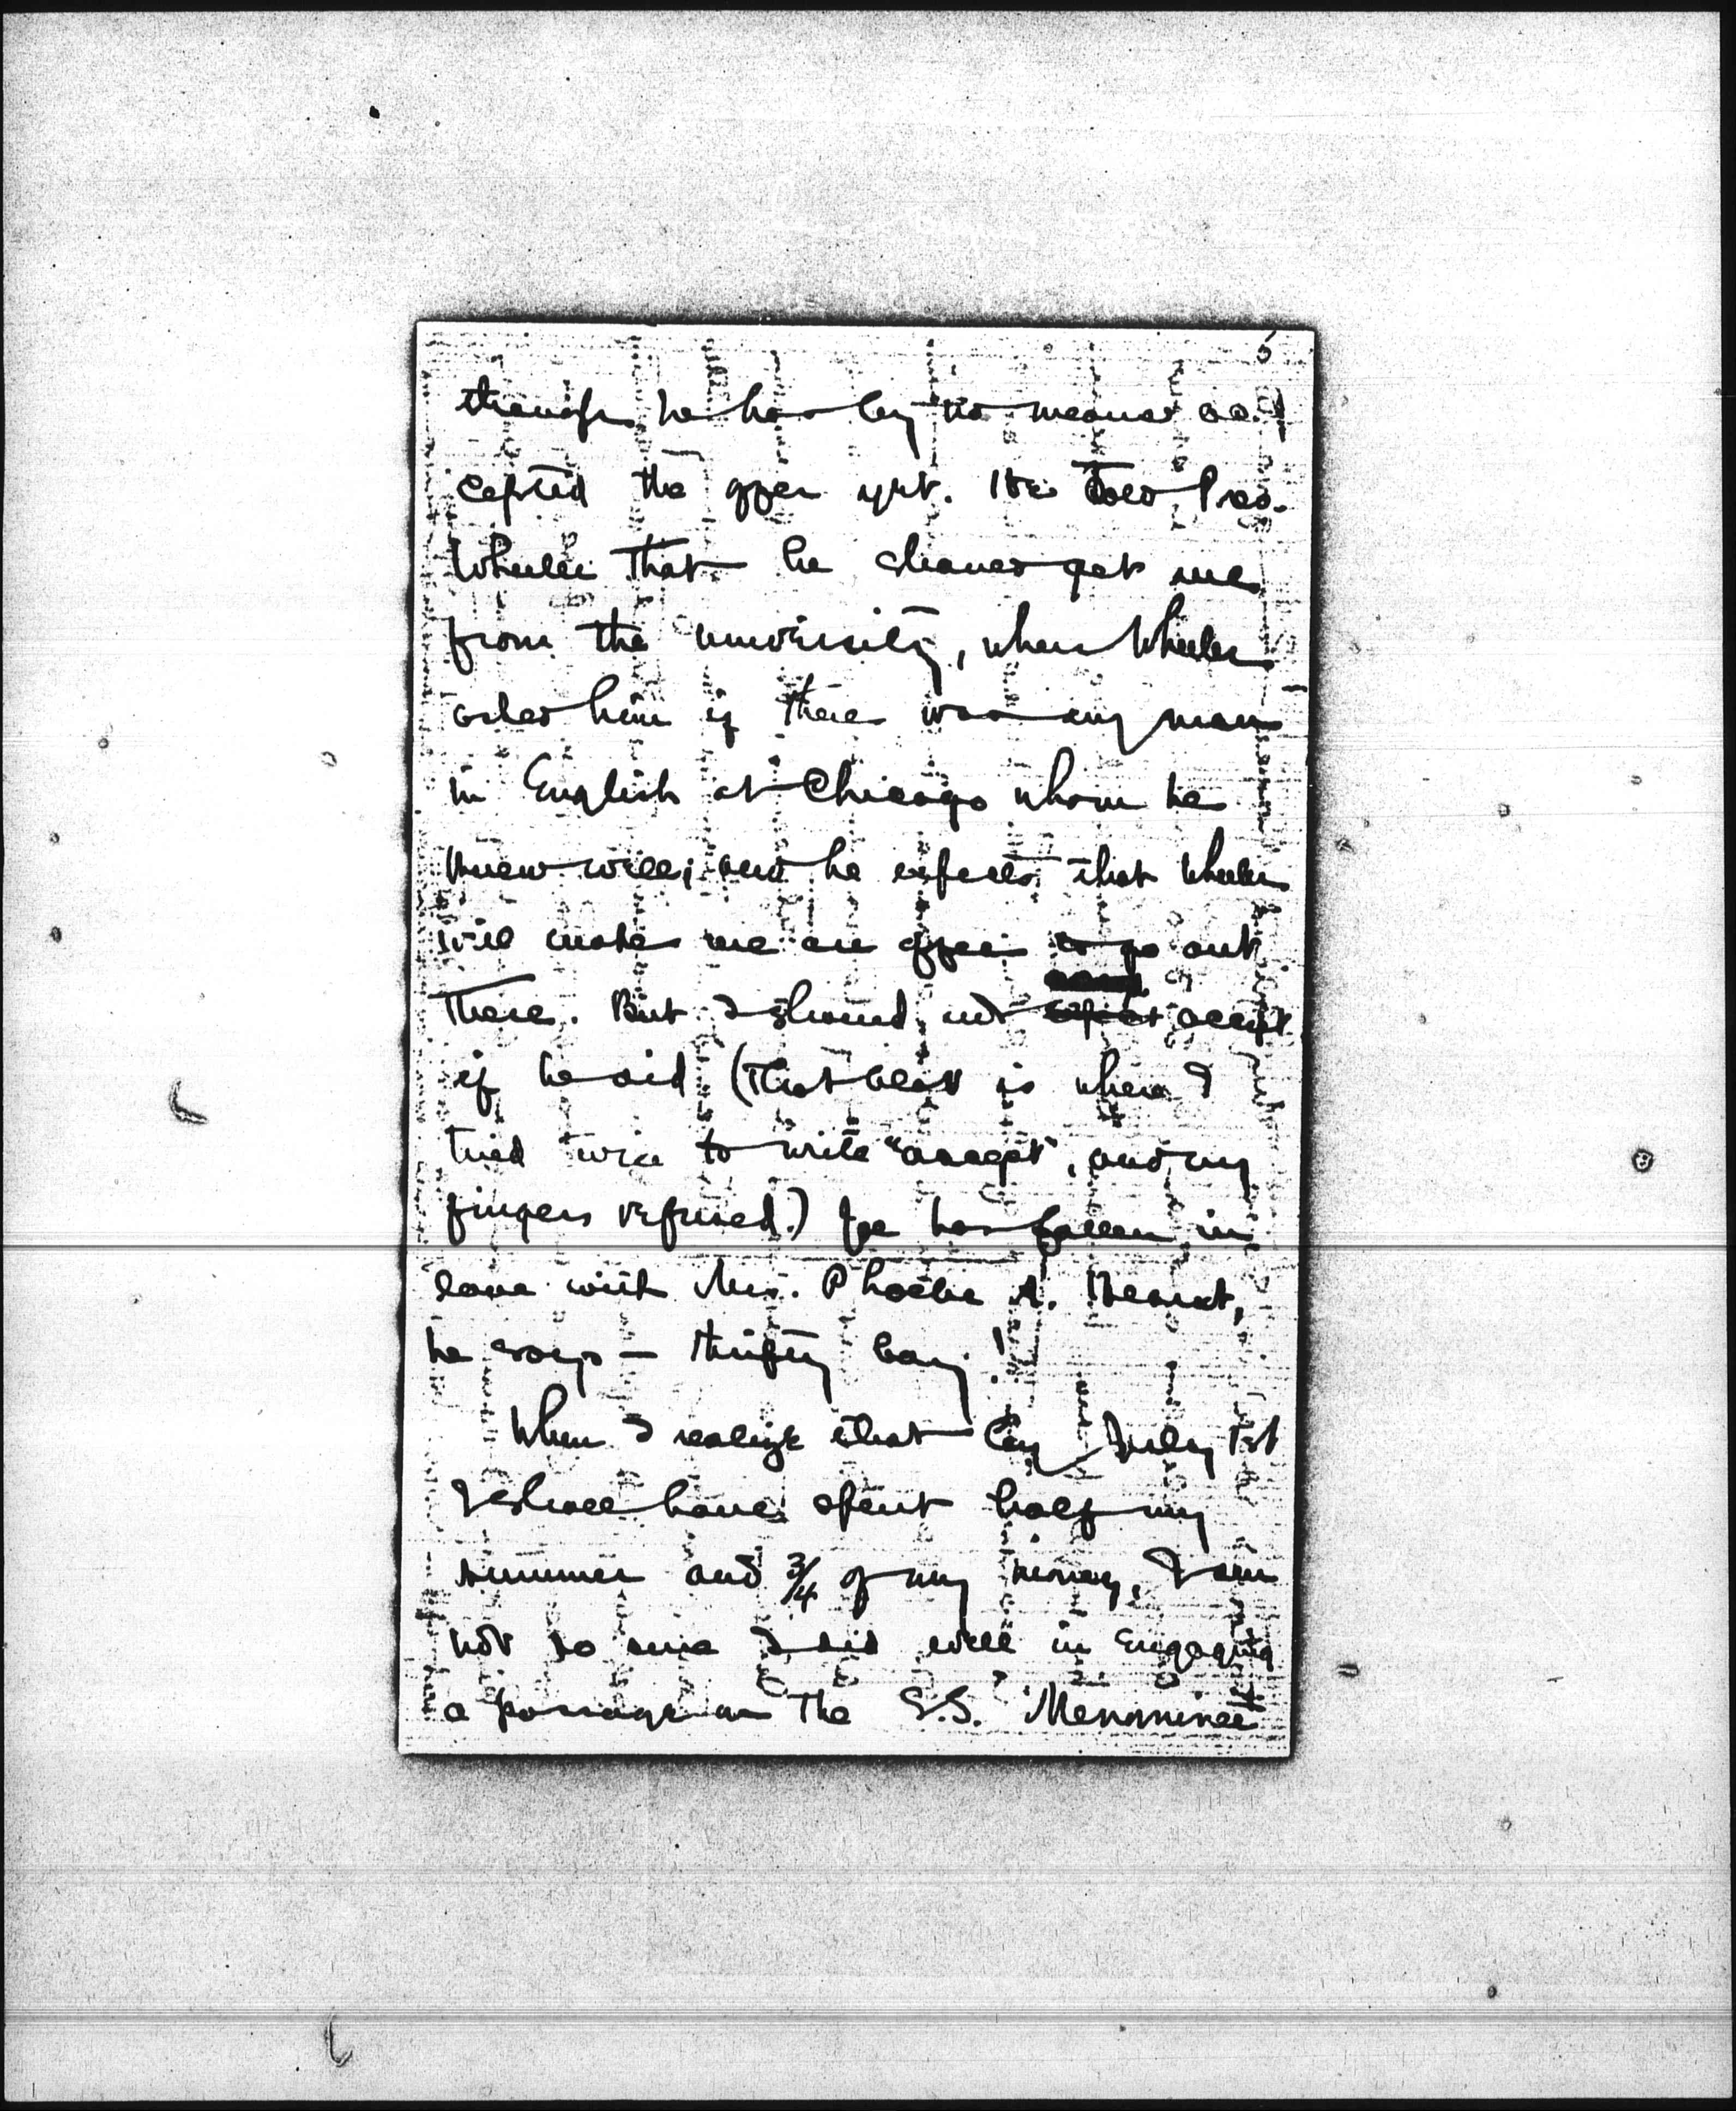 5
though he has by no means ac-
cepted the offer yet. He told Pres.
Wheeler that he should get me
from the university, when Wheeler
asked him if there was any man
in English at Chicago whom he
knew well; and he expects that Wheeler
will make me an offer to go out
there. But I should not accept
if he did (That blot is where I
tried twice to write "accept", and my
fingers refused.) Joe has fallen in
love with Mrs. Phoebe A. Hearst,
he says — thrifty boy!
When I realize that by July 1st
I shall have spent half my
summer and 3/4 of my money, I am
not so sure I did well in engaging
a passage on the S.S. Menominee